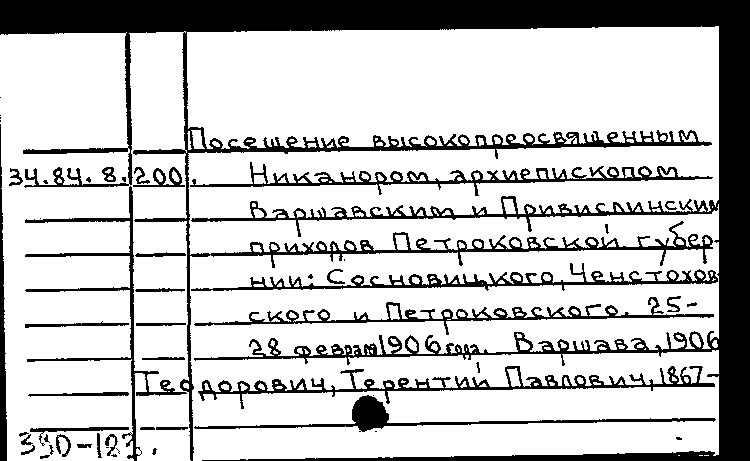 Посещение высокопреосвященным
34.84.8.200. Никанором, архиепископом
Варшавским и Привислинским
приходов Петроковской губер-
нии: Сосновицкого, Ченстохов
ского и Петроковского. 25-
28 февраля 1906 года. Варшава, 1906
Теодорович, Терентий Павлович, 1867-
390-183.